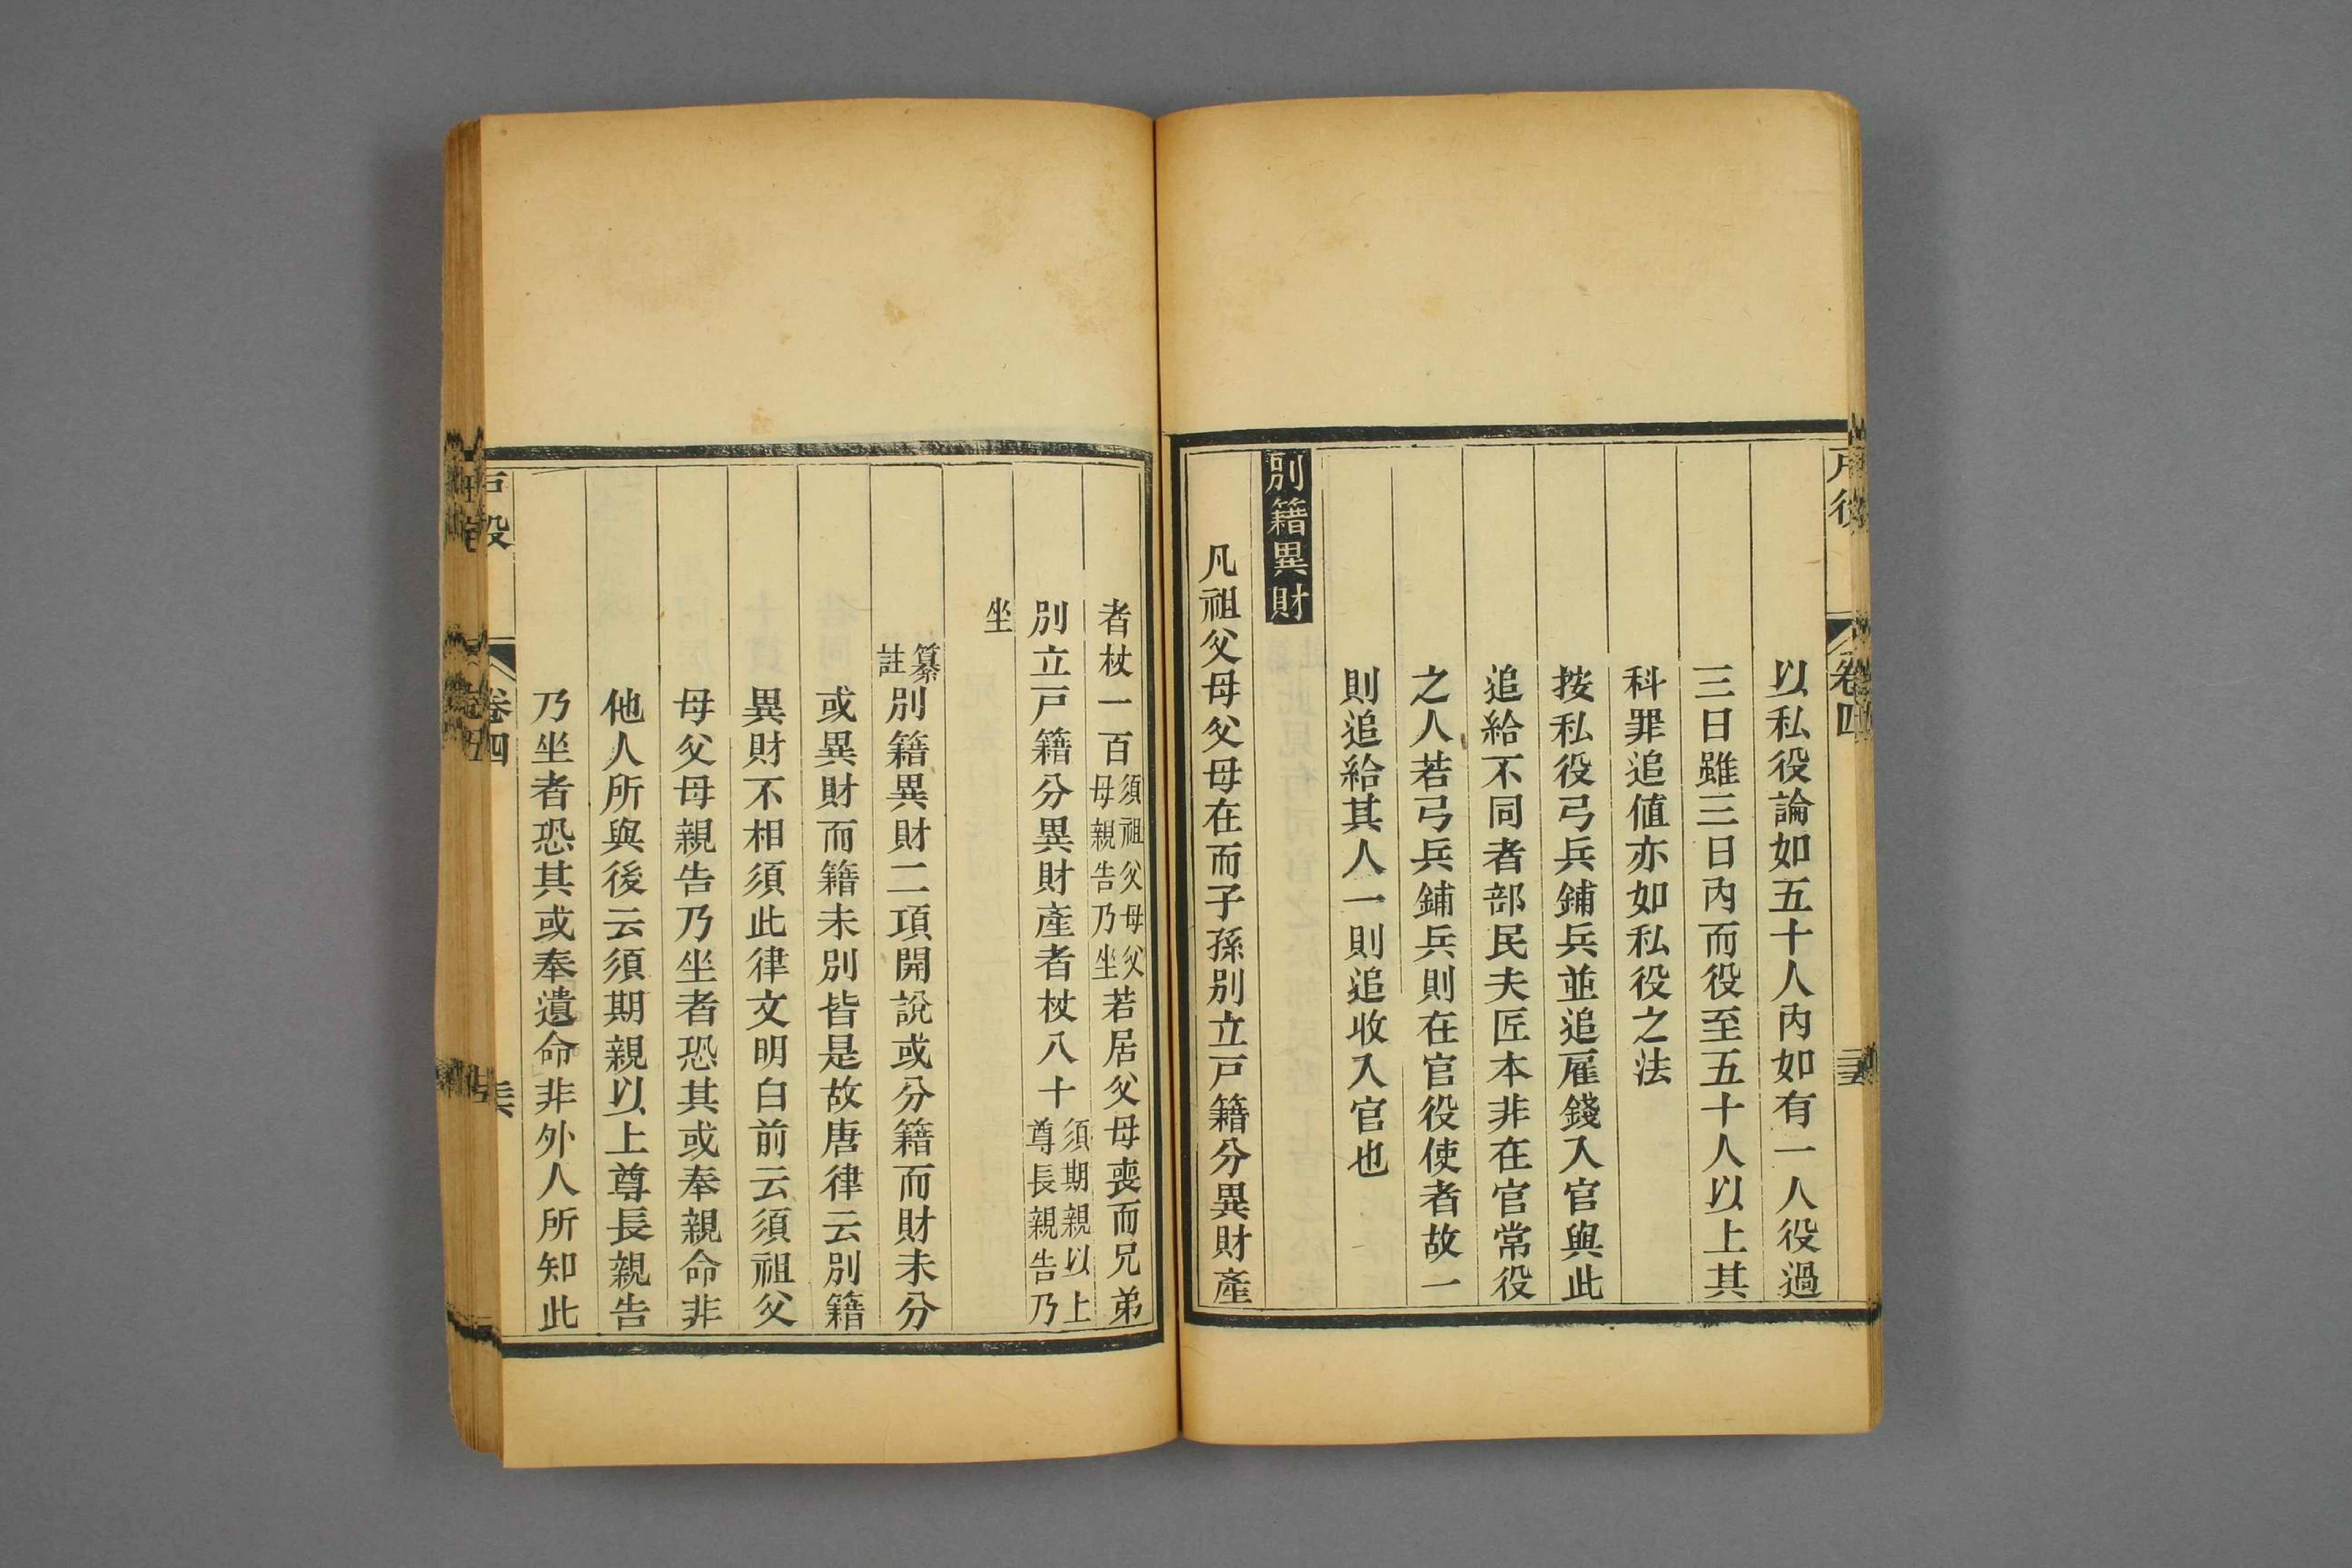 戶役
卷四
以私役論如五十人內如有一人役過
三日雖三日內而役至五十人以上其
科罪追値亦如私役之法
按私役弓兵鋪兵並追雇錢入官與此
追給不同者部民夫匠本非在官常役
之人若弓兵鋪兵則在官役使者故一
則追給其人一則追收入官也
別籍異財
凡祖父母父母在而子孫別立戶籍分異財產
者杖一百須祖父母父母親告乃坐若居父母喪而兄弟
別立戶籍分異財產者杖八十須期親以上尊長親告乃
坐
纂註別籍異財二項開說或分籍而財未分
或異財而籍未別皆是故唐律云別籍
異財不相須此律文明白前云須祖父
母父母親告乃坐者恐其或奉親命非
他人所與後云須期親以上尊長親告
乃坐者恐其或奉遺命非外人所知此
卷四